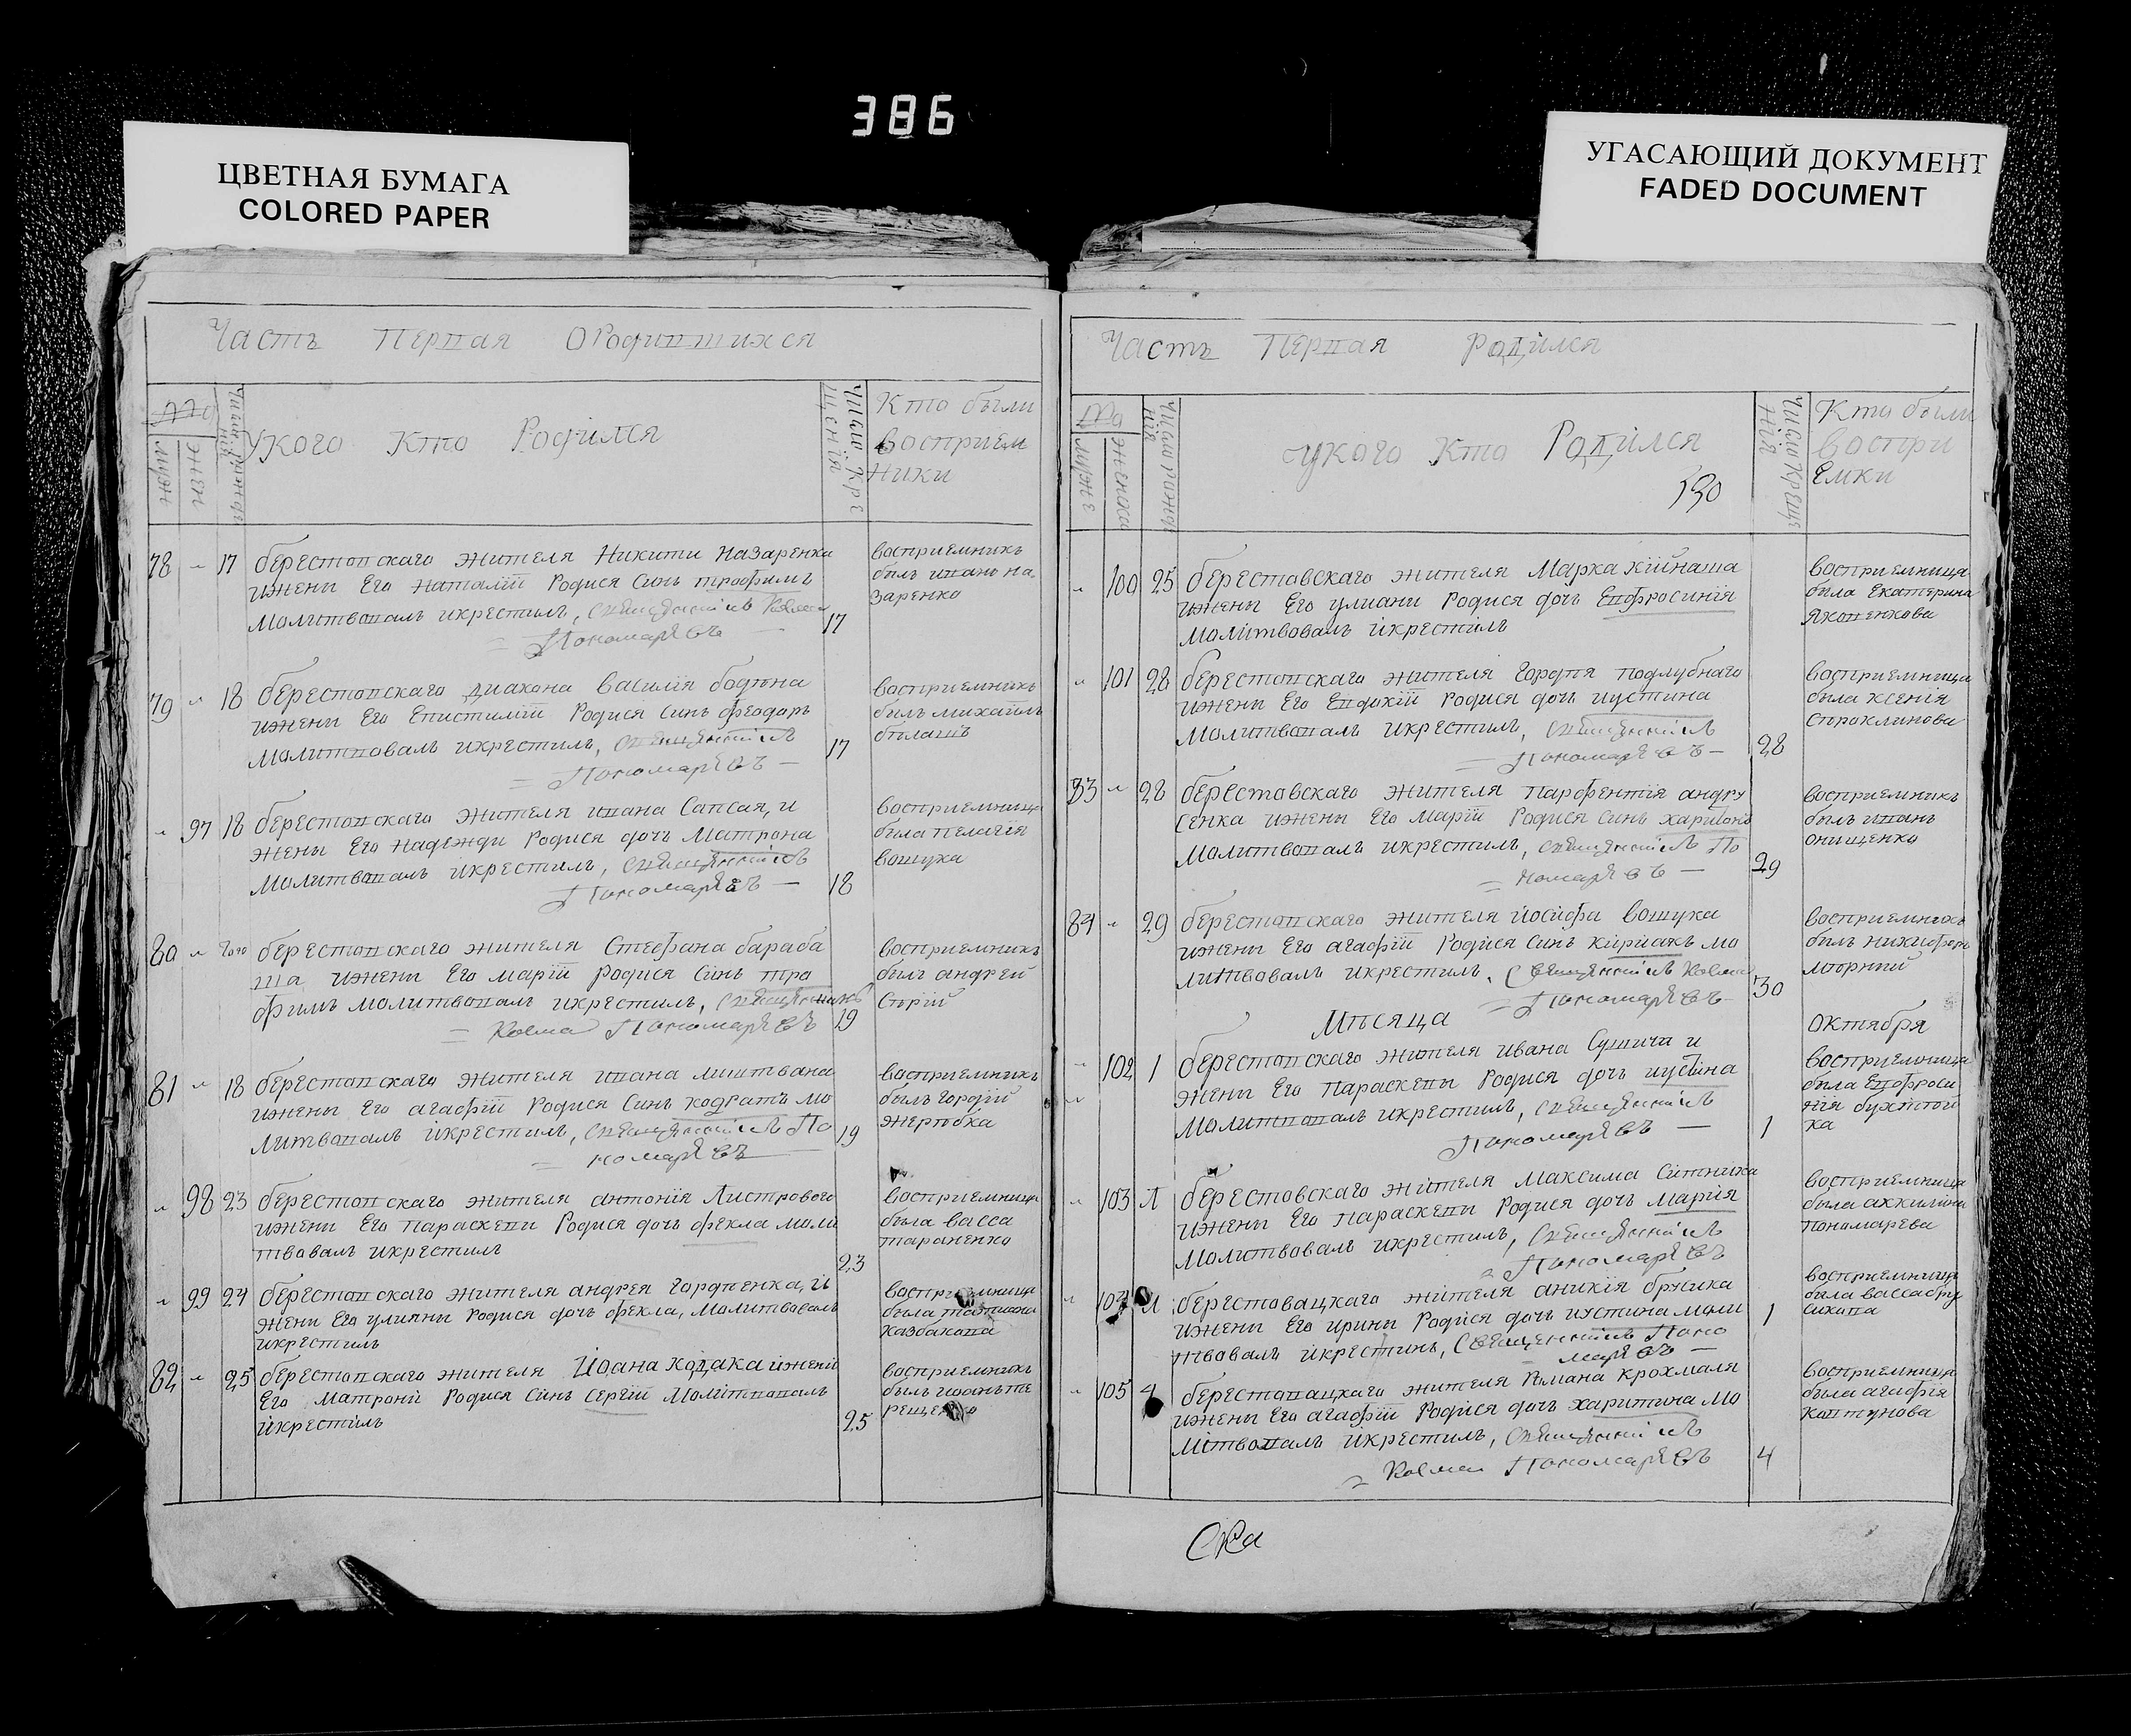 386
ЦВЕТНАЯ БУМАГА
COLORED PAPER
УГАСАЮЩИЙ ДОКУМЕНТ
FADED DOCUMENT
Часть Первая О Родившихся
№
муж
жен
Числа рожде
нія
У кого Кто Родился
Числа Кре
щенія
Кто были
восприем
ники
78 - 17 берестовскаго жителя Никити Назаренка
ижени Его Наталіи Родися Синъ трофимъ
Молитвовалъ икрестилъ, Священникъ Косма
Пономарєвъ
17
восприемникъ
былъ иванъ на
заренко
79 - 18 берестовскаго диакона василія бодяна
ижени Его Епистиміи Родися Синъ феодоръ
молитвовалъ икрестил, Священникъ
Пономарєвъ
17
восприемникъ
былъ михаилъ
билашъ
- 97 18 берестовскаго жителя ивана Сапсая, и
жены Его надежди Родися дочь Матрона
молитвовалъ икрестилъ, Священникъ
Пономарєвъ
18
восприемница
была пелагія
вошука
80 - берестовскаго жителя Стефана бараба
ша, ижени Его Маріи Родися Синъ тро
фимъ молитвовалъ икрестилъ, Священникъ
Косма Пономарєвъ
19
восприемникъ
былъ андрей
Сирий
81 - 18 берестовскаго жителя ивана лиштвана
ижени Его агафіи Родися Синъ кодратъ мо
литвовалъ икрестил, Священникъ По
номарєвъ
19
восприемникъ
былъ гордий
жеребка
- 98 23 берестовскаго жителя антонія Листрового
ижени Его параскеви Родися дочь фекла моли
твовалъ икрестилъ
23
восприемница
была васса
тараненко
- 99 24 берестовскаго жителя андрея гордиенка, и
жени Его улияни Родися дочь фекла, Молитвовалъ
икрестилъ
восприемница
была татиана
казбакова
82 - 25 берестовскаго жителя Йоана кодака ижени
Его Матрони Родися Синъ Сергій Молитвовалъ
икрестилъ
25
восприемникъ
былъ иоанъ те
рещенко
Часть Первая Родился
№
муже
женска
Числа рожде
нія
у кого Кто Родился
190
Числа Креще
нія
Кто были
воспри
емки
- 100 25 берестовскаго жителя Марка кійнаша
ижены Его улиани Родися дочь Евфросинія
молитвовалъ икрестилъ
восприемница
была Екатерина
Яковенкова
- 101 28 берестовскаго жителя гордея подлубнаго
ижени Его Евдокіи Родися дочь иустина
молитвовалъ икрестил, Священникъ
Пономарєвъ
28
восприемница
была ксенія
Строклинова
83 - 28 берестовскаго жителя парфентія андру
сенка ижены Его Маріи Родися Синъ харитонъ
Молитвовалъ икрестил, Священникъ По
номарєвъ
29
восприемникъ
былъ иванъ
онищенко
84 - 29 берестовскаго жителя йосифа вошука
ижени Его агафіи Родися Синъ киріакъ мо
литвовалъ икрестилъ, Священникъ Косма
Пономарєвъ
30
восприемникъ
былъ никифоръ
моорний
Мѣсяца октября
- 102 1 берестовскаго жителя ивана Сушича и
жени Его Параскевы Родися дочь иустина
Молитвовалъ икрестил, Священникъ
Пономарєвъ
1
восприемница
была Евфроси
нія бухтой
ка
- 103 Л берестовскаго жителя Максима Ситника
ижени Его параскевы Родися дочь Марія
Молитвовалъ икрестил, Священникъ
Пономарєвъ
восприемница
была аккилина
пономарева
- 104 берестовацкаго жителя аникія брусика
ижени Его ирини Родися дочь иустина моли
твовалъ икрестилъ, Священникъ Поно
марєвъ
1
восприемница
была васса бру
сикова
- 105 4 берестовацкаго жителя Романа крохмаля
ижени Его агафіи Родися дочь харитина мо
литвовалъ икрестил, Священникъ
Косма Пономарєвъ
4
восприемница
была агафія
ковтунова
Ска